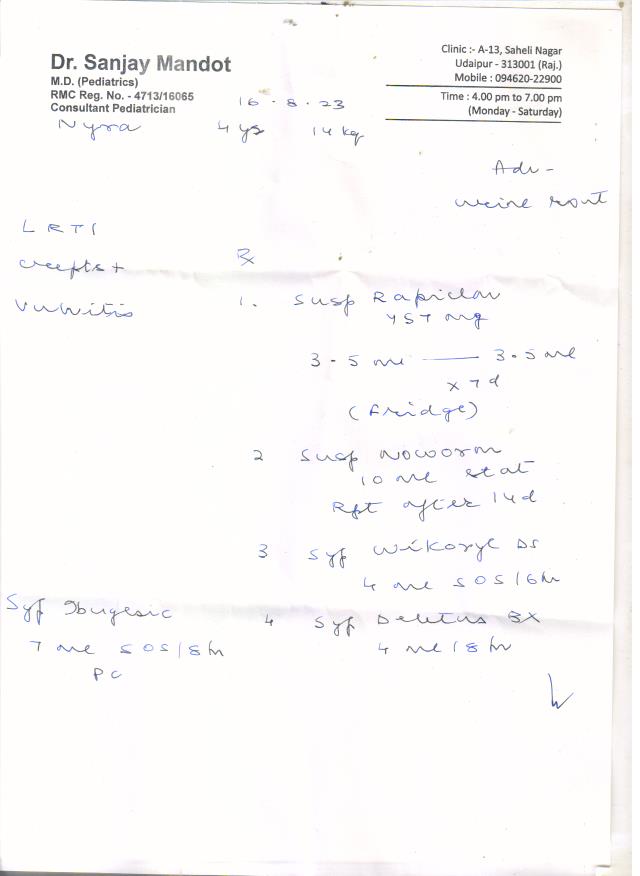 Dr. Sanjay Mandot
M.D. (Pediatrics)
RMC Reg. No. - 4713/16065
Consultant Pediatrician
Clinic :- A-13, Saheli Nagar
Udaipur - 313001 (Raj.)
Mobile : 094620-22900
Time : 4.00 pm to 7.00 pm
(Monday - Saturday)
16 . 8 . 23
Nyra 4 ys 14 kg
Adv -
urine rout
LRTI
crepts +
Vulvitis
Rx
1. Susp Rapiclav
457 mg
3.5 ml — 3.5 ml
x 7 d
(Fridge)
2 Susp Noworm
10 ml stat
Rpt after 14 d
3 Syp Wikoryl DS
4 ml SOS / 6 hr
Syp Ibugesic
7 ml SOS / 8 hr
PC
4 Syp Deletus BX
4 ml / 8 hr